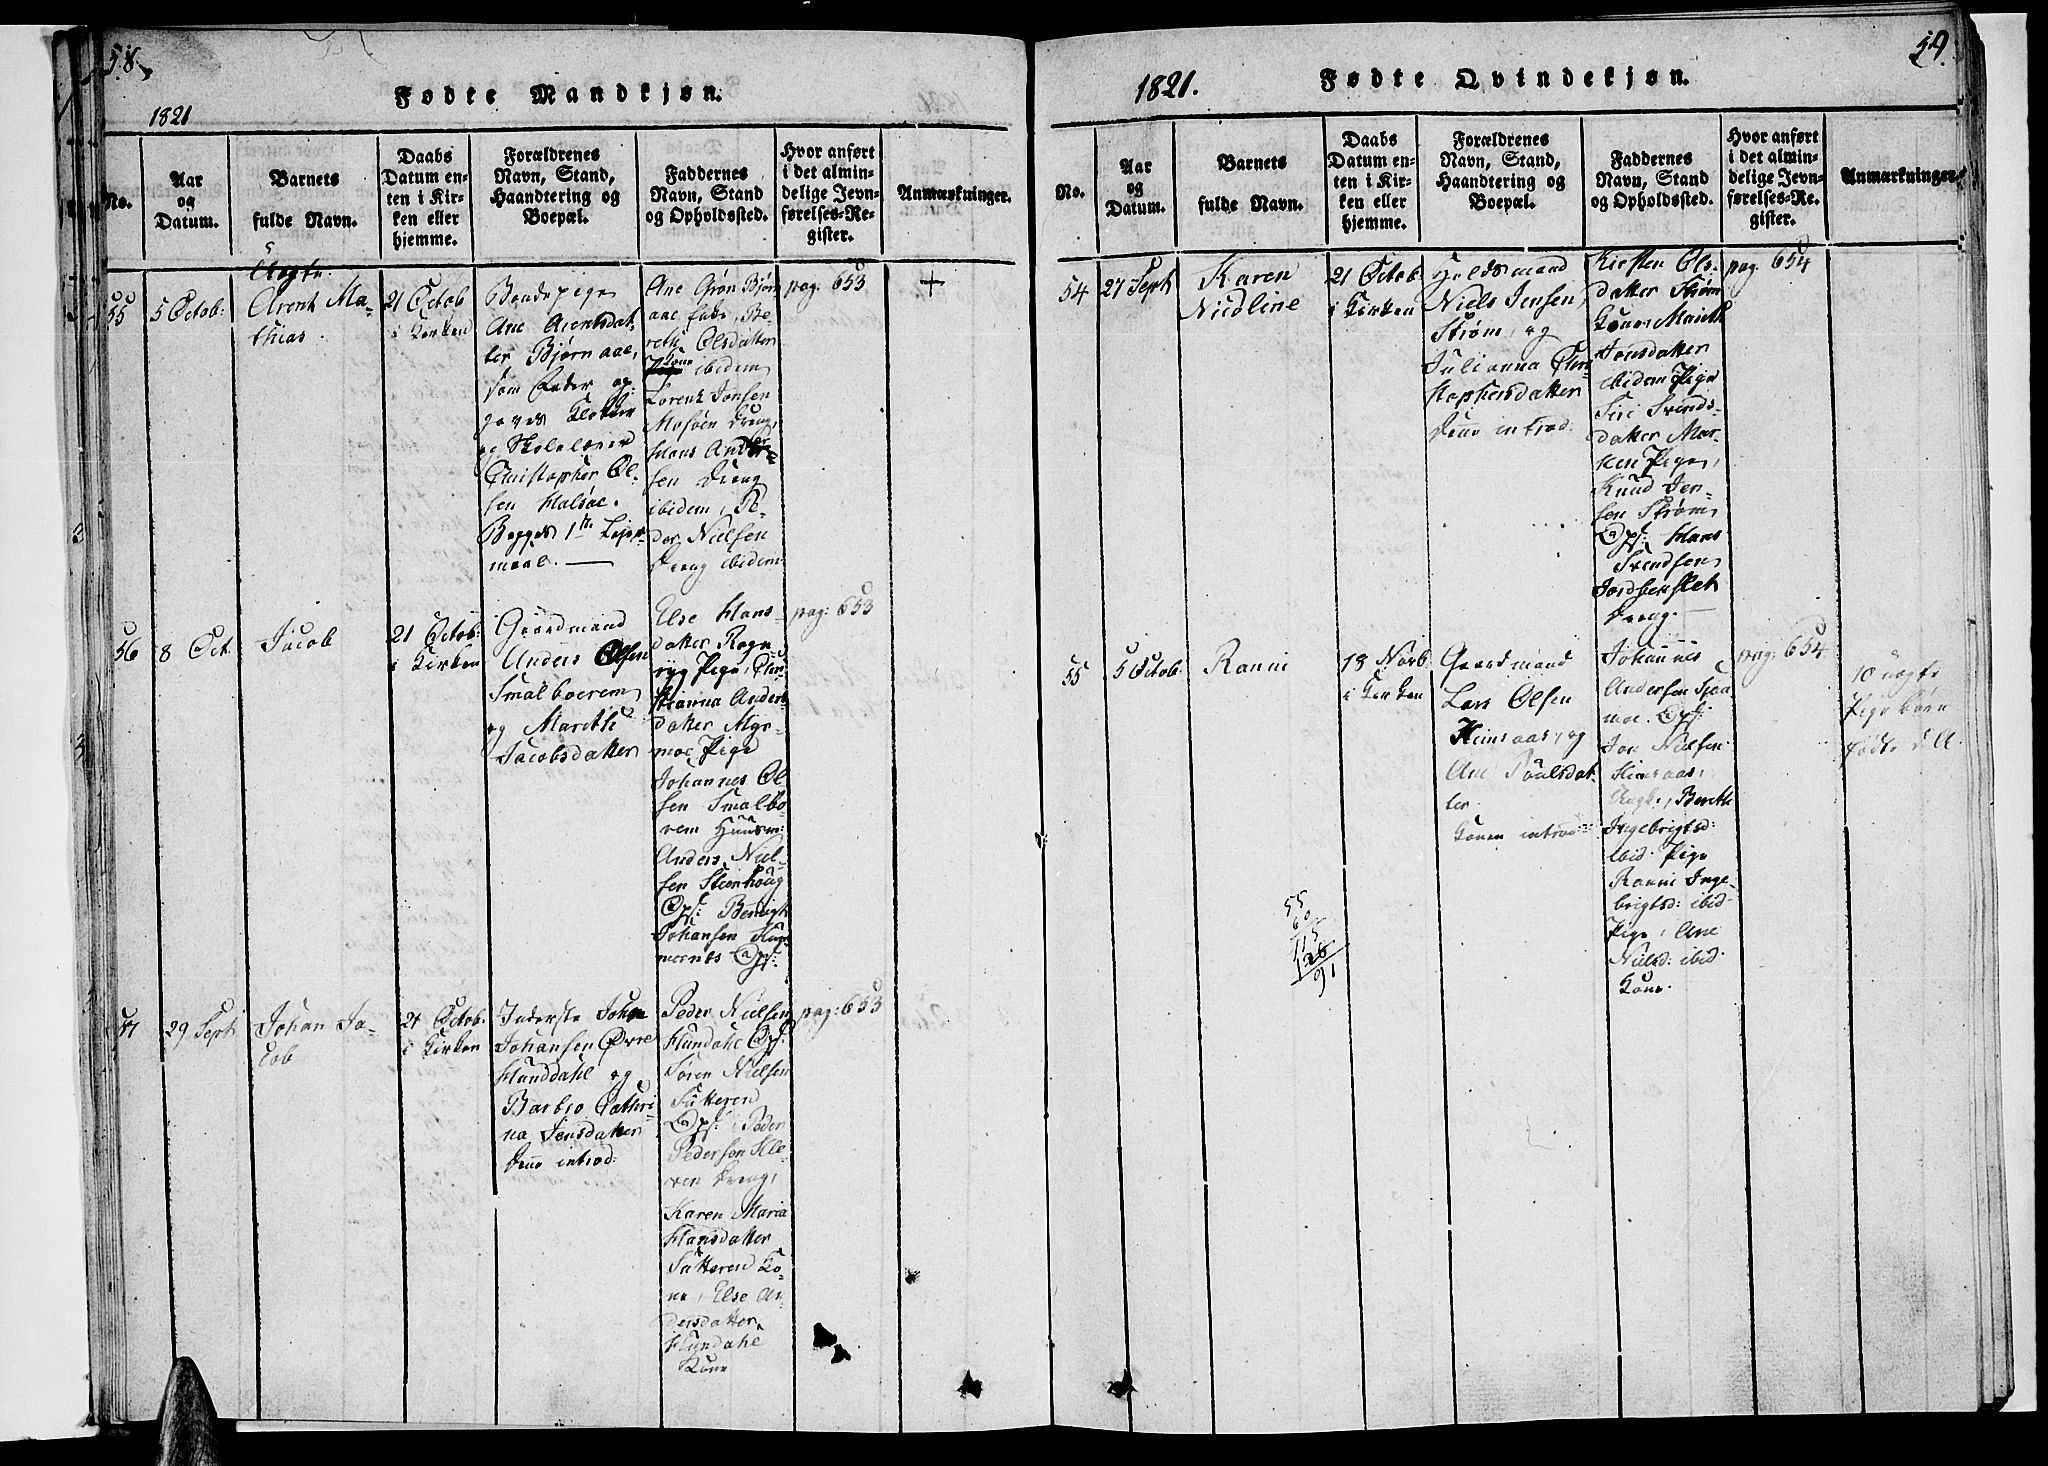 58.
Fødte Mandkjøn.
1821
No.
Aar
og
Datum.
Barnets
fulde Navn.
Daabs
Datum en-
ten i Kir-
ken eller
hjemme.
Forældrenes
Navn, Stand,
Haandtering og
Boepæl.
Faddernes
Navn, Stand
og Opholdssted.
Hvor anført
i det almin-
delige Jevn-
førelses-Re-
gister.
Anmærkninger.
55
5 Octob:
Uægte.
Arent Ma-
thias.
21 Octob
i Kirken
Bondepige
Ane Arentsdat-
ter Bjørnaae,
som Fader op-
gaves Klokker
og Skolelærer
Christopher Ol-
sen Halsøe.
Begges 1te Leier-
maal.
Ane Grøn Bjørn
aae Enke, Be-
reth Olsdatter
Kone ibidem
Lorentz Jonsen
Mosøen Dreng,
Hans Ander-
sen Dreng
ibidem, Pe-
der Nielsen
Dreng ibidem
pag: 653
+
56
8 Oct.
Jacob
21 Octob:
i Kirken
Gaardmand
Anders Olsen
Smalboerem
og Marethe
Jacobsdatter
Else Hans
datter Rogn
ryg Pige, Chri-
stianna Anders
datter Myr-
moe Pige
Johannes Ol
sen Smalbo
rem Huusm:
Anders Niel-
sen Steenhoug
Ops: Bendigt
Johansen
Ops:
pag: 653
57
29 Sept.
Johan Ja-
cob
21 Octob.
i Kirken
Inderste Johan
Johansen Øvre
Hunddahl og
Barbro Cathri-
na Jensdatter
Denne introd:
Peder Nielsen
Hundahl Ops:
Søren Nielsen
Sætteren
Ops: Peder
Pedersen Kle-
ven Dreng,
Karen Maria
Hansdatter
Sætteren Ko-
ne, Else An-
dersdatter
Hundahl
Kone
pag: 653
59.
1821.
Fødte Qvindekjøn.
No.
Aar
og
Datum.
Barnets
fulde Navn.
Daabs
Datum en-
ten i Kir-
ken eller
hjemme.
Forældrenes
Navn, Stand,
Haandtering og
Boepæl.
Faddernes
Navn, Stand
og Opholdssted.
Hvor anført
i det almin-
delige Jevn-
førelses-Re-
gister.
Anmærkninger.
54
27 Sept
Karen
Nicoline
21 Octob
i Kirken
Niels Jensen
Strøm, og
Julianna Chri-
stophersdatter
Denne introd.
Kirsten Ols-
datter Strøm
Kone, Mareth
Jonsdatter
ibidem Pige
Siri Svends-
datter Mar-
ken Pige,
Knud Jen-
sen Strøm
Ops: Hans
Svendsen
Dreng.
pag: 654
55
5 Octob.
Ranni
18 Novb.
i Kirken
Gaardmand
Lars Olsen
Hemsaas, og
Ane Poulsdat-
ter.
Konen introd:
Johannes
Andersen
moe. Ops:
Jon Nielsen
Hemsaas,
Ungk., Bereth
Ingebrigtsd:
ibid. Pige
Ranni Inge-
brigtsd: ibid
Pige, Ane
Nielsd: ibid.
Kone.
pag: 654.
10 uægte
Pigebørn
fødte d. A.
55
60
115
91